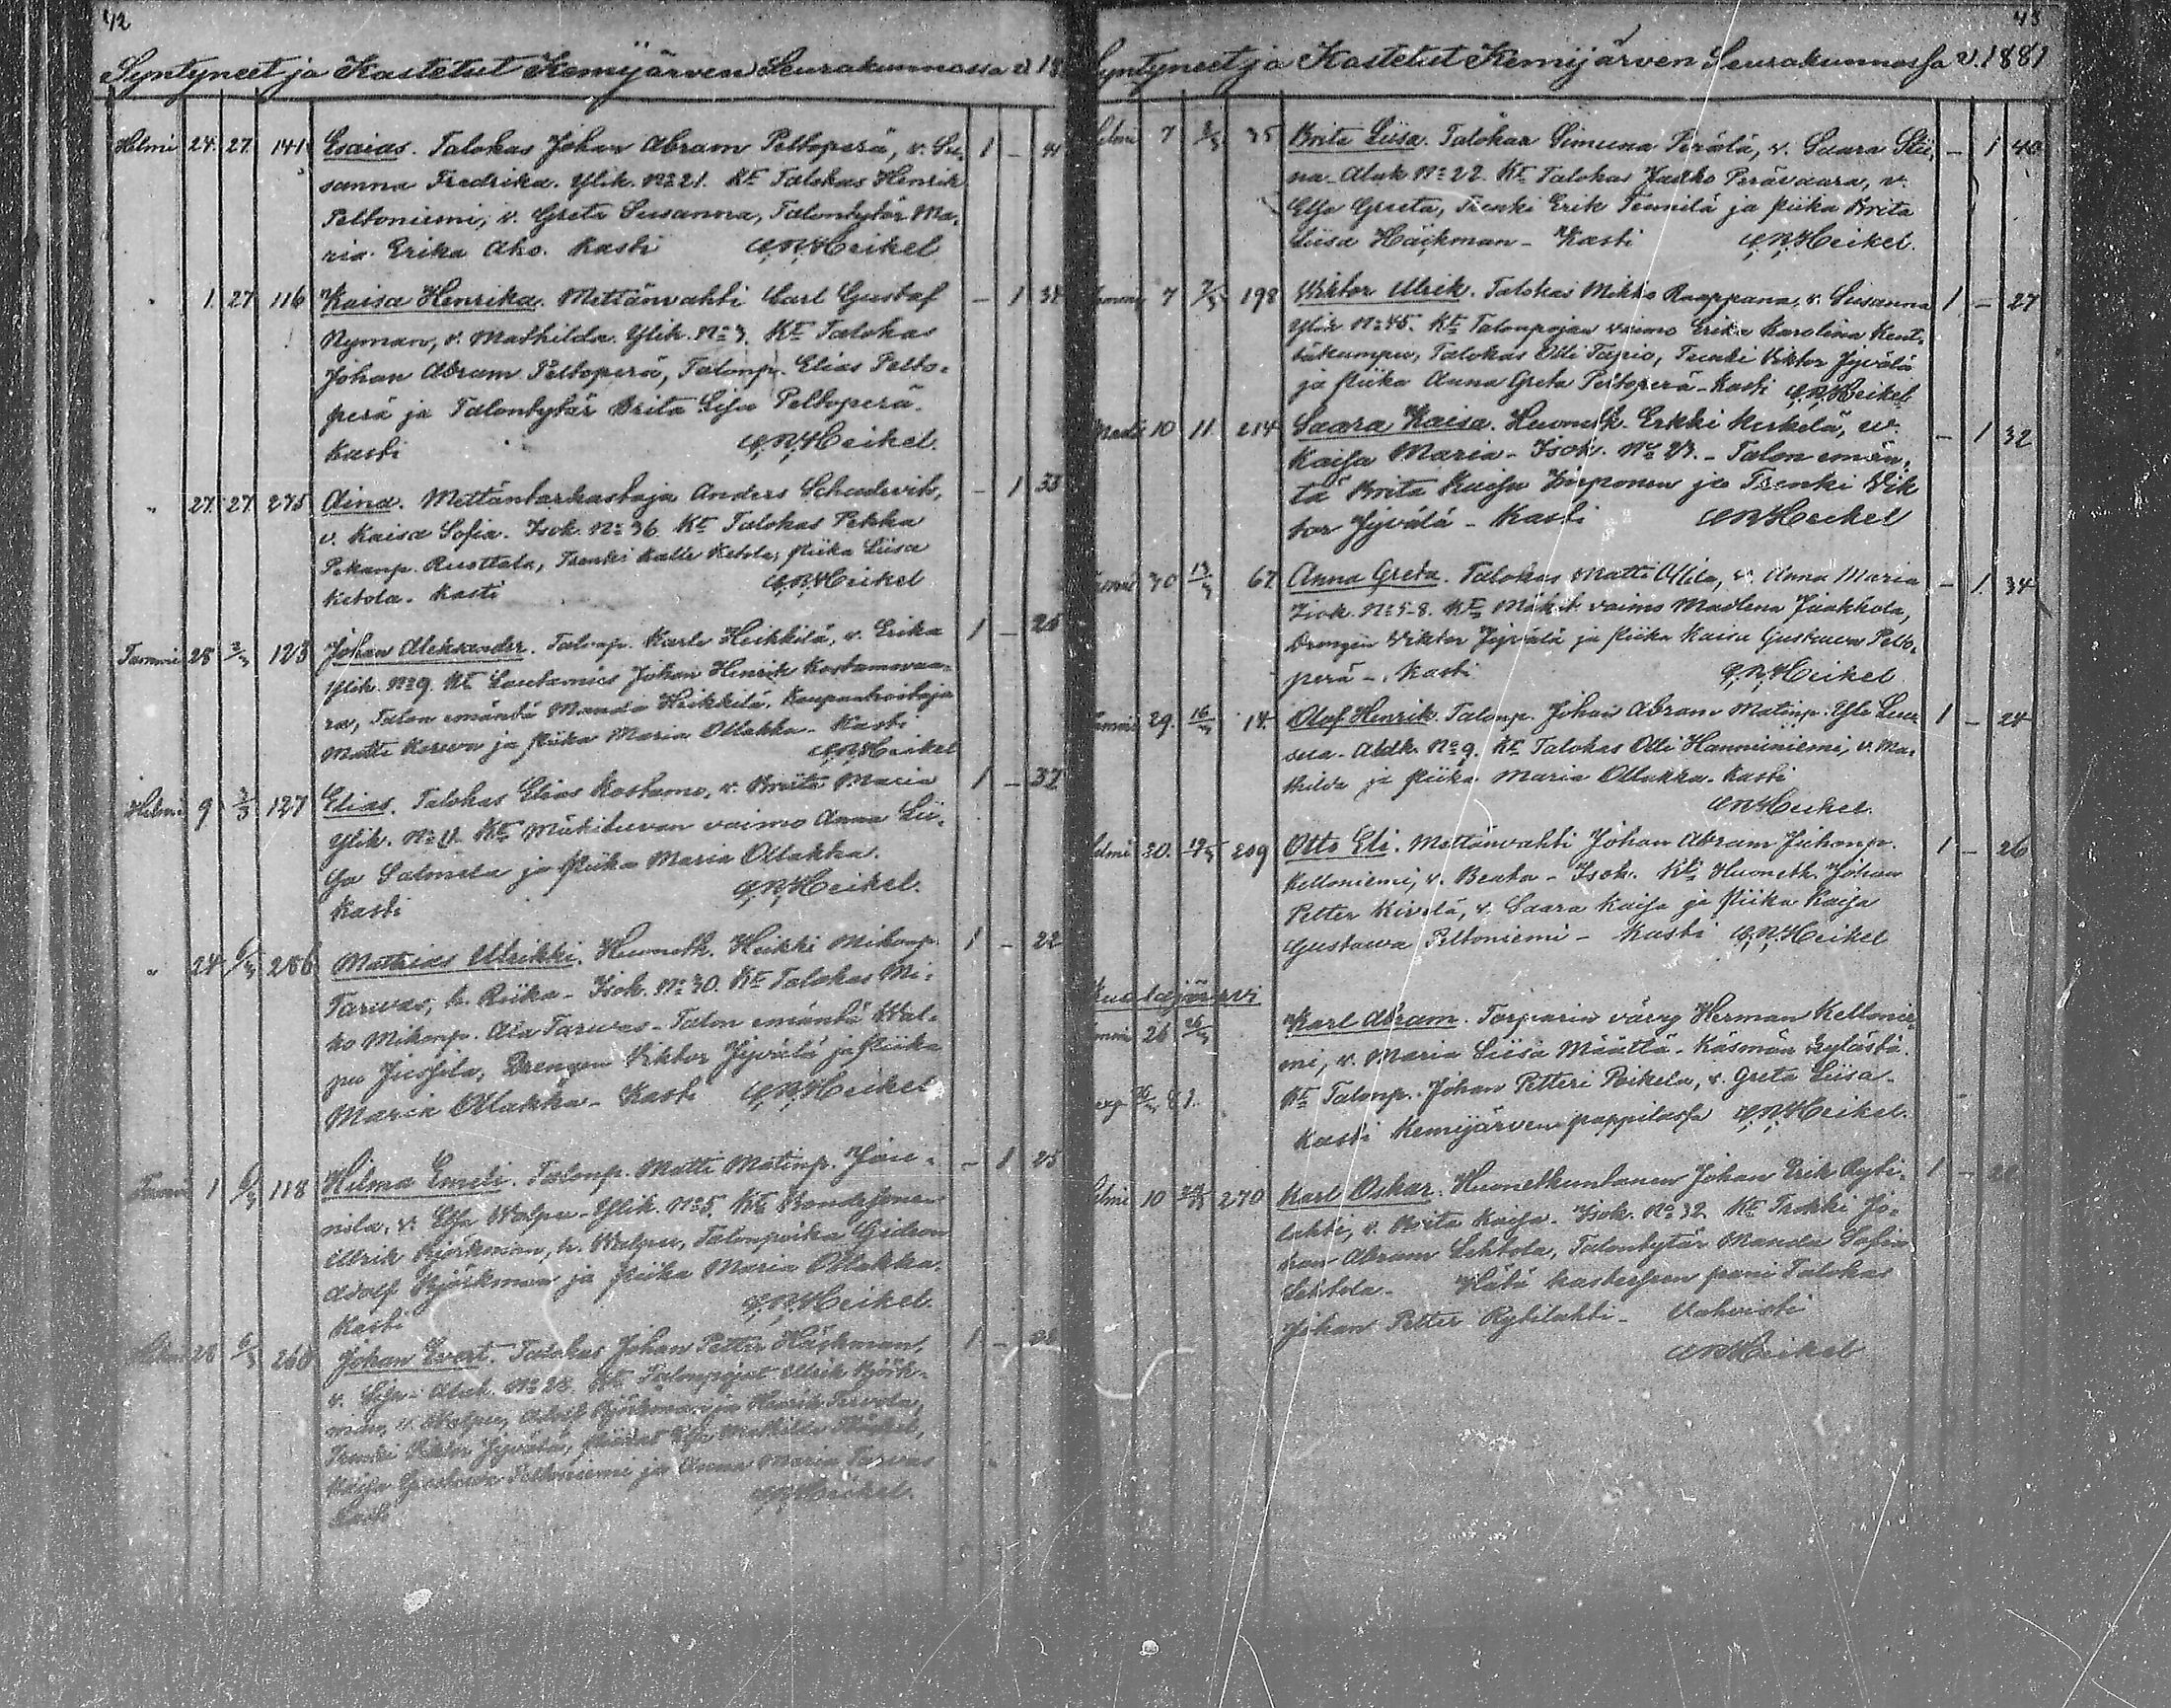 42
Syntyneet ja Kastetut Kemijärven Seurakunnassa v. 18
Helmi 24. 27. 141 Esaias. Talokas Johan Abram Peltoperä, v. Su- 1 – 41
sanna Fredrika. Ylik. No 21. Kt Talokas Henrik
Peltoniemi, v. Greta Susanna, Talontytär Ma-
ria Erika Aho. Kasti Heikel
" 1. 27 116 Kaisa Henrika. Mettänvahti Carl Gustaf – 1 34
Nyman, v. Mathilda. Ylik. No 3. Kt Talokas
Johan Abram Peltoperä, Talonp. Elias Pelto-
perä ja Talontytär Brita Lisa Peltoperä.
Kasti Heikel.
" 27. 27. 275 Aina. Mettäntarkastaja Anders – 1 33
v. Kaisa Sofia. Isok. No 36. Kt Talokas Pekka
Pekanp. Ruottala, Trenki Kalle Ketola, Piika Liisa
Ketola. Kasti Heikel
Tammi 28 2/3 123 Johan Aleksander. Talonp. Karle Heikkilä, v. Erika 1 – 26
Ylik. No 9. Kt Lautamies Johan Henrik Kostamovaa-
ra, Talon emäntä Manda Heikkilä, Kaupanhoitaja
Matti Karwo ja Piika Maria Ollakka. Kasti
Heikel
Helmi 9 3/3 127 Elias. Talokas Elias Kostamo, v. Briita Maria 1 – 37
Ylik. No 11. Kt Mäkituvan vaimo Anna Lii-
sa Salmela ja Piika Maria Ollakka.
Kasti Heikel.
" 24 6/3 286 Mathias Ulrikki. Huoneth. Heikki Mikonp. 1 – 22
Tarwas, h. Riika – Isok. No 30. Kt Talokas Mi-
ko Mikonp. Ala Tarwas – Talon emäntä Wal-
pu Drengen Viktor Jyvälä ja Piika
Maria Ollakka – Kasti Heikel
Tammi 1 6/3 118 Hilma Emeli. Talonp. Matti Matinp. Jaa- – 1 25
nila, v. Elsa Walpu – Ylik. No 5. Kt Bondesonen
Ulrik Björkman, h. Walpu, Talonpoika Gideon
Adolf Björkman ja Piika Maria Ollakka.
Kasti Heikel.
28 6/3 260 Johan Evert. Talokas Johan Petter Häckman, 1 –
v. Lisa – Aluk. No 28. Kt Talonpojat Ulrik Björk-
man, v. Walpu, Adolf Björkman ja Henrik Tervola,
Trenki Viktor Jyvälä, Piiat Elsa Mathilda
Kaisa Gustava Peltoniemi ja Anna Maria Tarwas
Kasti Heikel.
43
Syntyneet ja Kastetut Kemijärven Seurakunnassa v. 1881
Helmi 7 35 Brita Liisa. Talokas Simuna Perälä, v. Saara Stii- – 1 40
na – Aluk No 22. Kt Talokas Jaakko Perävaara, v.
Elsa Greeta, Trenki Erik Tennilä ja Piika Brita
Liisa Häckman – Kasti Heikel.
7 7/3 198 Wiktor Ulrik. Talokas Mikko Raappana, v. Susanna 1 – 27
Ylik No 45. Kt Talonpojan vaimo Erika Karolina Kent-
täkumpu, Talokas Olli Tapio, Trenki Viktor Jyvälä
ja Piika Anna Greta Peltoperä – Kasti Heikel
10 11 214 Saara Kaisa. Huoneth. Erkki Kerkelä, w. – 1 32
Kaisa Maria – Isok. No 23. – Talon emän-
tä Brita Kaisa ja Trenki Wik
tor Jyvälä – Kasti Heikel
30 13/3 67 Anna Greta. Talokas Matti v. Anna Maria – 1. 34
Isok. No 58. Kt Mäkit. vaimo Madlena Jaakkola,
Drengin Wiktor Jyvälä ja Piika Kaisa Gustawa Pelto-
perä – Kasti Heikel
29. 16/3 14. Olof Henrik. Talonp. Johan Abram Matinp. Yli Luu 1 – 24
sua – Aluk. No 9. Kt Talokas Olli Hanniniemi, v. Ma-
thilda ja Piika Maria Ollakka. Kasti
Heikel.
Helmi 20. 19/3 209 Otto Eli. Mettänvahti Johan Abram Juhonp. 1 – 26
Kelloniemi, v. Beata – Isok. Kt Huoneth. Johan
Petter Kivelä, v. Saara Kaisa ja Piika Kaisa
Gustawa Peltoniemi – Kasti Heikel
Kuolajärvi
26 Karl Abram. Torparin vävy Herman Kellonie-
mi, v. Maria Liisa Määttä – Käsmän kylästä.
Kt Talonp. Johan Petteri Poikela, v. Greta Liisa –
Kasti Kemijärven pappilassa Heikel.
Helmi 10 270 Karl Oskar. Huonetkuntanen Johan Erik Ryti- 1 –
lahti, v. Brita Kaisa – Isok. No 32. Kt Trenki Jo-
han Abram Lehtola, Talontytär Manda Sofia
Lehtola – Hätä kasteessen pani Talokas
Johan Petter Rytilahti – Vahvisti
Heikel